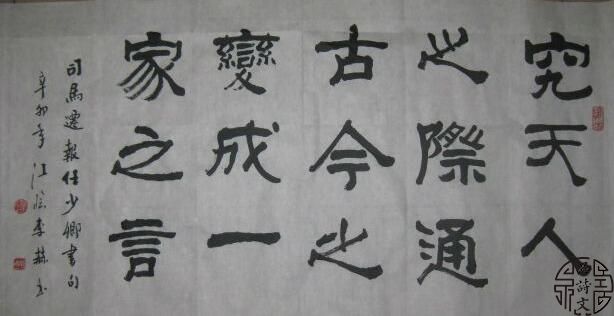 究天人
之際通
古今之
變成一
家之言
司馬遷報任少卿書句
辛卯年江